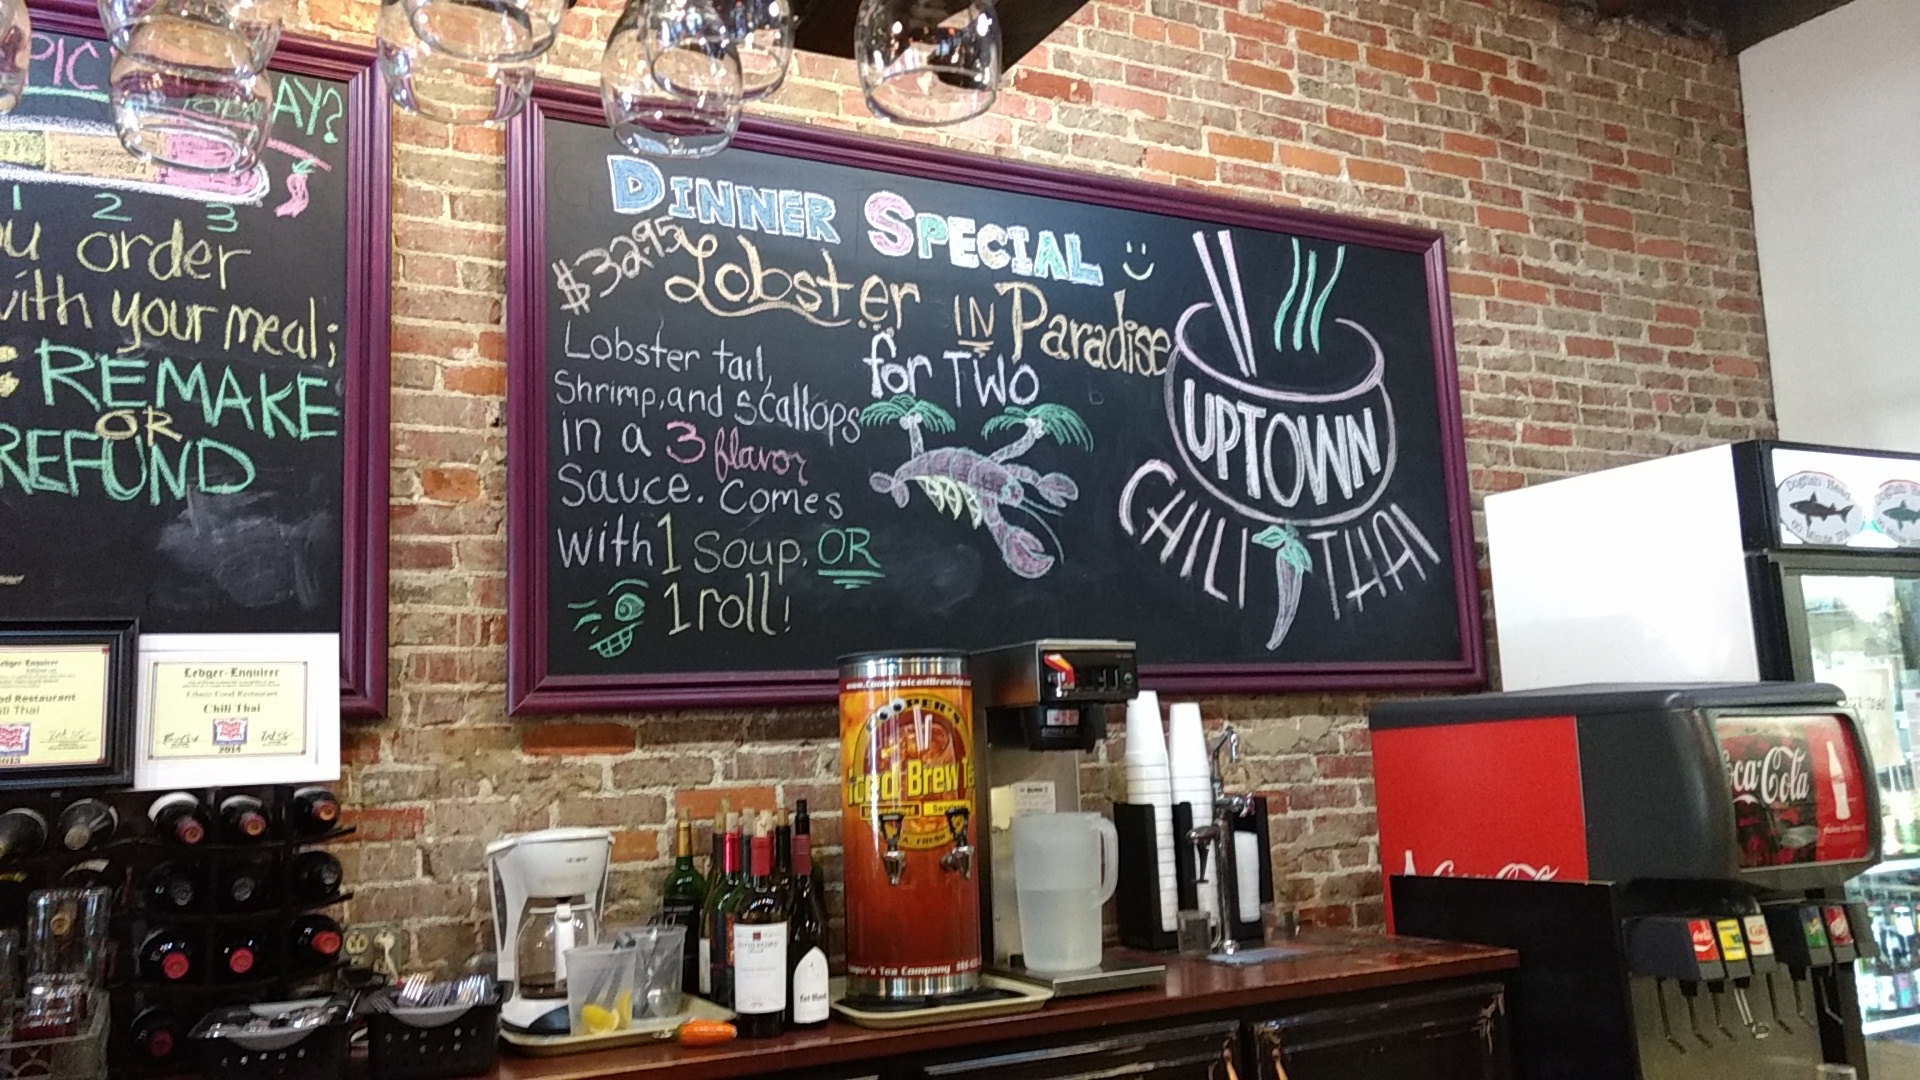 PIC
AY?
1 2 3
order
with your meal;
REMAKE
OR
REFUND
DINNER SPECIAL
$32.95
Lobster IN Paradise
for TWO
Lobster tail,
Shrimp, and scallops
in a 3 flavor
sauce. Comes
with 1 soup. OR
1 roll!
UPTOWN
CHILI THAI
Ledger-Enquirer
Chili Thai
2014
Ledger-Enquirer
Restaurant
Thai
2013
www.CoopersIcedBrewTea
COOPER'S
Iced Brew Te
Cooper's Tea Company
Dogfish Head
60 Minute IPA
Coca-Cola